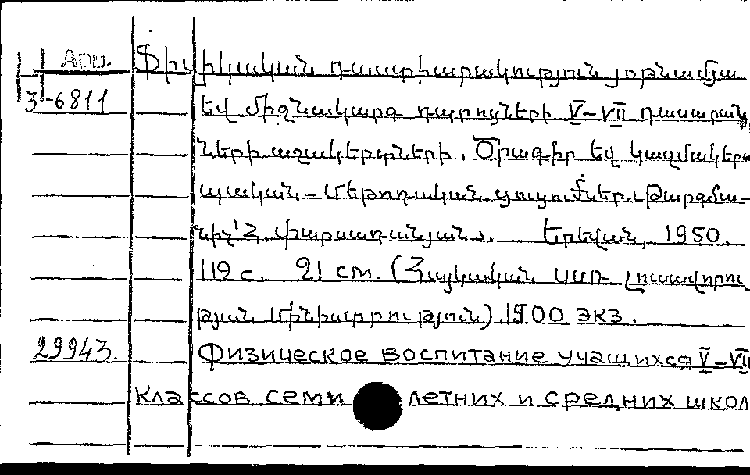 Арм. Ֆիզիկական դաստիարակություն յոթնամյա
3-6811 եվ միջնակարգ դպրոցների V-VII դասարան
ների աշակերտների. Ծրագիր եվ կազմակեր
պական-մեթոդական ցուցումներ. Թարգմա-
նիչ՝ Հ. Փարսադանյան. Երեվան, 1950.
119 с. 21 см. (Հայկական ՍՍՌ Լուսավորու
թյան Մինիստրություն) 1900 экз.
29943. Физическое воспитание учащихся V-VII
классов семилетних и средних школ